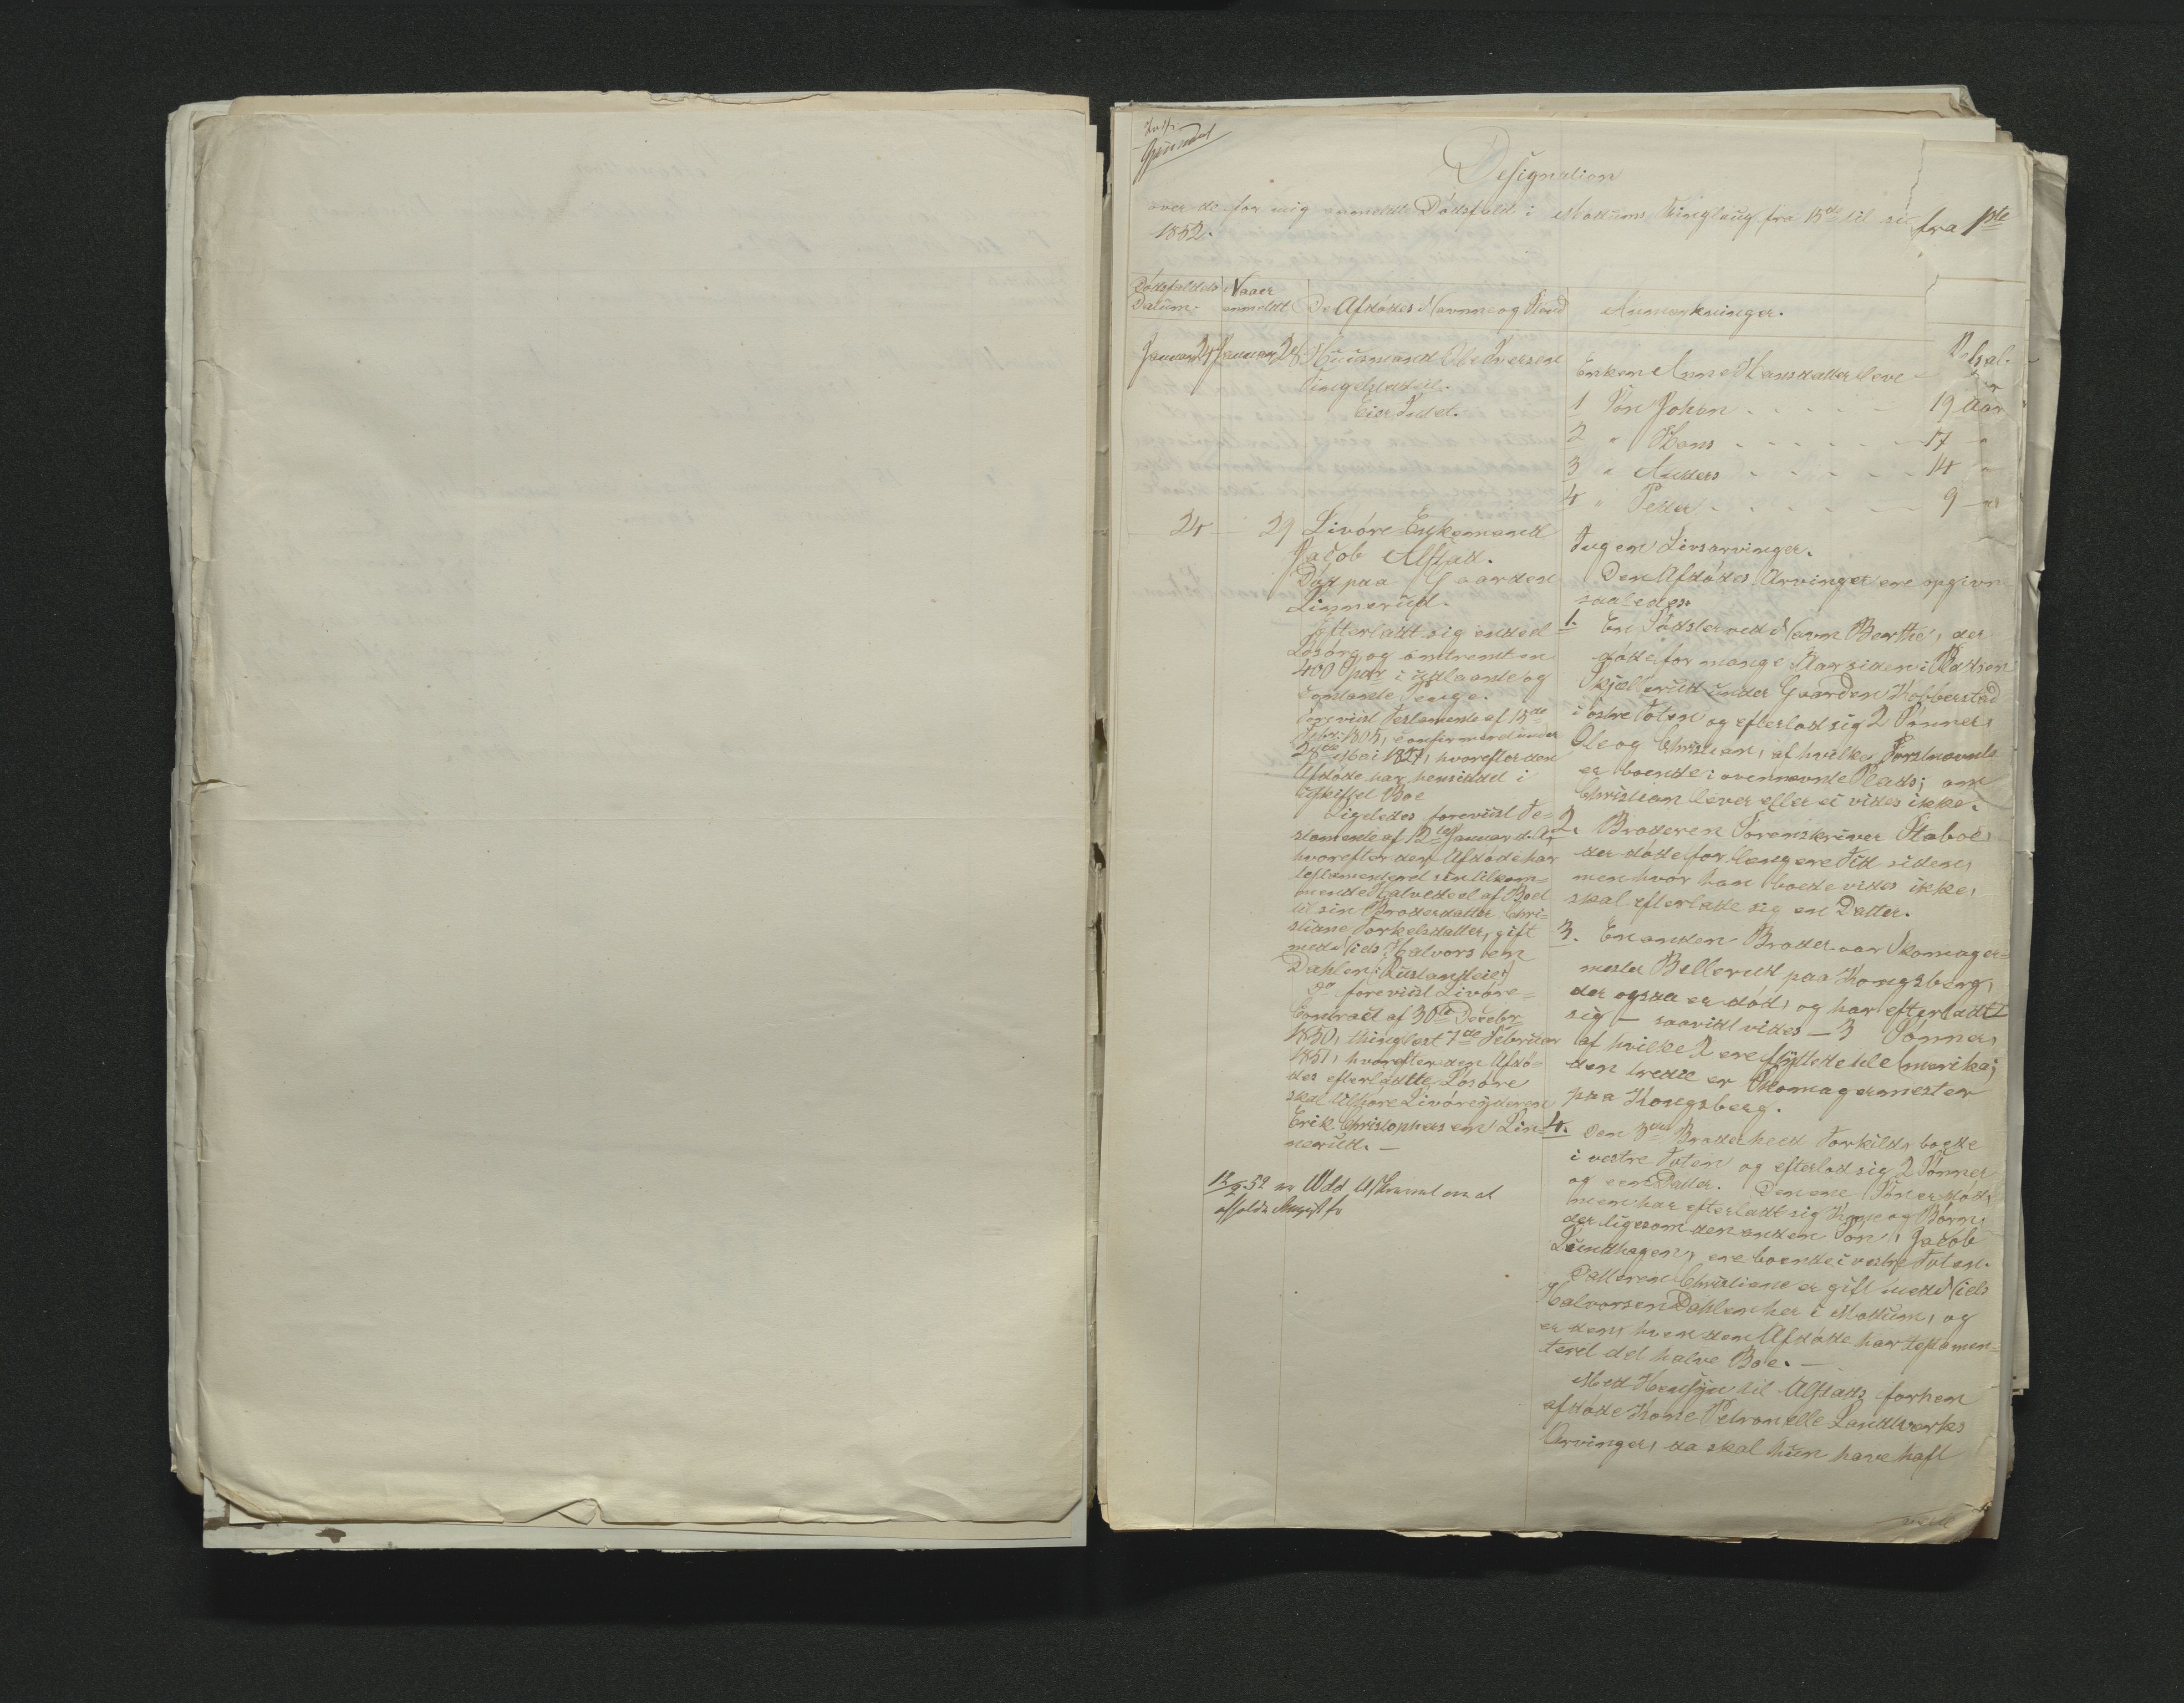 Designation
over de for mig anmeldte Dødsfald i Modums Thinglaug fra 15de til
1852.
fra 1ste
Dødsfaldets
Datum.
Naar
anmeldt
De Afdødes Navne og Stand
Anmærkninger.
Januar 24
Januar 28
Huusmand Ole Iversen
Eier Intet.
Enken Anne Hansdatter lever
1 Søn Johan - - - - 19 Aar
2 " Hans - - - - - 17 "
3 " Anders - - - - 14 "
4 " Peder - - - - - 9 "
24
29
Livøre-Enkemand
Jacob Alstad.
Død paa Gaarden
Linnerud.
Efterladt sig endeel
Løsøre og omtrent en
400 Spdr i udlaante og
contante Penge.
Foreviist Testamente af 15de
1805, confirmered under
Mai 1827, hvorefter den
Afdøde har hensiddet i
uskiftet Boe
Ligeledes foreviist Te-
stamente af 12te Januar d. A.
hvorefter den Afdøde har
testamentered sin tilkom-
mende Halvedeel af Boet
til sin Broderdatter Chri-
stiane Torkelsdatter, gift
med Niels Halvorsen
Dahlen
foreviist Livøre-
Contract af 30te Decebr
1850, thinglæst 7de Februar
1851, hvorefter den Afdø-
des efterladte Løsøre
skal tilhøre Livøreyderen
Erik Christophersen Lin-
nerud. —
Ingen Livsarvinger.
Den Afdødes Arvinger ere opgivne
saaledes:
1. En Søster ved Navn Berthe, der
døde for mange Aar siden i Pladsen
Skjellerud under Gaarden Kobberstad
i østre Toten og efterlod sig 2 Sønner,
Ole og Christian, af hvilke Førstnævnte
er boende i ovennævnte Plads; om
Christian lever eller ei vides ikke.
2. Broderen Sorenskriver Staboe,
der døde for længere Tid siden,
men hvor han boede vides ikke,
skal efterlade sig en Datter.
3. En anden Broder var Skomager-
mester Bellerud paa Kongsberg,
der ogsaa er død, og har efterladt
sig — saavidt vides — 3 Sønner,
af hvilke 2 ere flyttede til Amerika;
den tredie er Skomagermester
paa Kongsberg.
4. Den 3die Broder heed Torkild, boede
i vestre Toten og efterlod sig 2 Sønner
og een Datter. Den ene Søn er død,
men har efterladt sig Kone og Børn,
der ligesom den anden Søn, Jacob
Lundhagen, ere boende i vestre Toten.
Datteren Christiane er gift med Niels
Halvorsen Dahlen her i Modum, og
er den, hvem den Afdøde har testamen-
tered det halve Boe. —
Med Hensyn til Alstads forhen
afdøde Kone Petronelle Landtverks
Arvinger, da skal hun have haft